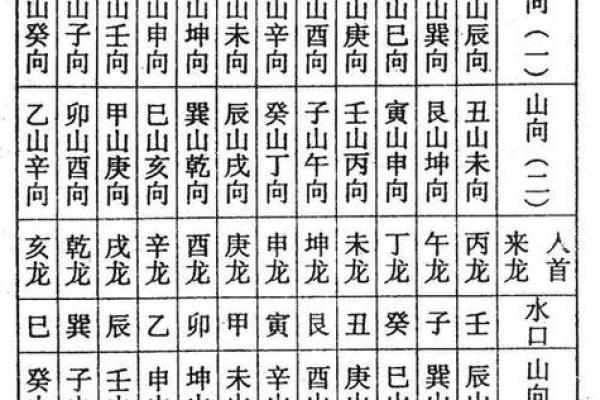 向（一）
山辰向
山巽向
山巳向
山庚向
山酉向
山辛向
山未向
山坤向
山申向
山壬向
山子向
山癸向
山向（二）
丑山未向
艮山坤向
寅山申向
壬山丙向
子山午向
癸山丁向
辰山戌向
巽山乾向
巳山亥向
甲山庚向
卯山酉向
乙山辛向
人首
来龙
丙龙
午龙
丁龙
未龙
坤龙
申龙
庚龙
酉龙
辛龙
戌龙
乾龙
亥龙
水口
壬
子
癸
丑
艮
寅
甲
卯
乙
辰
巽
巳
山向
辰山
巽山
巳山
庚山
酉山
辛山
未山
坤山
申山
壬山
子山
癸山